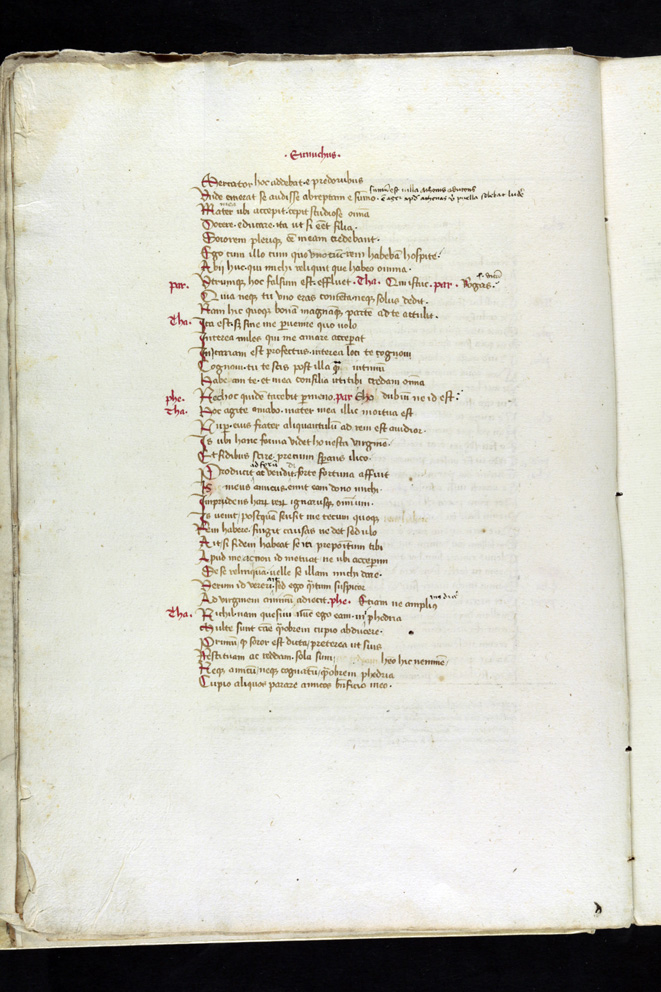 · Eunuchus ·
Mercator hoc addebat · e predonibus
Vnde emerat se audisse abreptam e sunio ·
Mater ubi accepit · cepit studiose omnia
Docere · educare · ita ut si eēt filia ·
Sororem pleriqȝ eē meam credebant ·
Ego cum illo cum quo uno tum rem habebā hospite ·
Abij huc · qui michi reliquit que habeo omnia ·
par · Vtrumqȝ hoc falsum est · effluet · Tha · Qui istuc · par · Rogas ·
Quia neqȝ tu uno eras contenta neqȝ solus dedit ·
Nam hic quoqȝ bonā magnāqȝ partē ad te attulit ·
Tha · Ita est · sȝ sine me peruenire quo uolo
Interea miles qui me amare acceperat
In cariam est profectus · interea loci te cognoui
Cognoui · tu te scis post illa intimū
Habeam te · et mea consilia ut tibi credam omnia
phe · Nec hoc quidē tacebit parmeno · par Oho dubiū ne id est :
Tha · Hoc agite amabo · mater mea illic mortua est
Nuper · eius frater aliquantulū ad rem est auidior ·
Is ubi hanc forma videt honesta virginē ·
Et fidibus scire · precium sperans ilico ·
Producit ac vendit · forte fortuna affuit
Is meus amicus · emit eam dono michi ·
Imprudens harū rerū ignarusqȝ omniū ·
Is uenit · postquā sensit me tecum quoqȝ
Rem habere · fingit causas ne det sedulo
Ait si fidem habeat se iri prepositum tibi
Apud me · ac non id metuat ne ubi acceperim
Sese relinquā · uelle se illam michi dare ·
Verum id vereri · sed ego quantum suspicor
Ad virginem animū adiecit · phe · Etiam ne amplius
Tha · Nichil · nam quesiui · nūc ego eam · mi phedria
Multe sunt cause quāobrem cupio abducere ·
Primū qȝ soror est dicta · preterea ut suis
Restituam ac reddam · sola sum · heo hic neminē ·
Neqȝ amicū neqȝ cognatū · quāobrem phedria
Cupio aliquos parare amicos bnficio meo ·